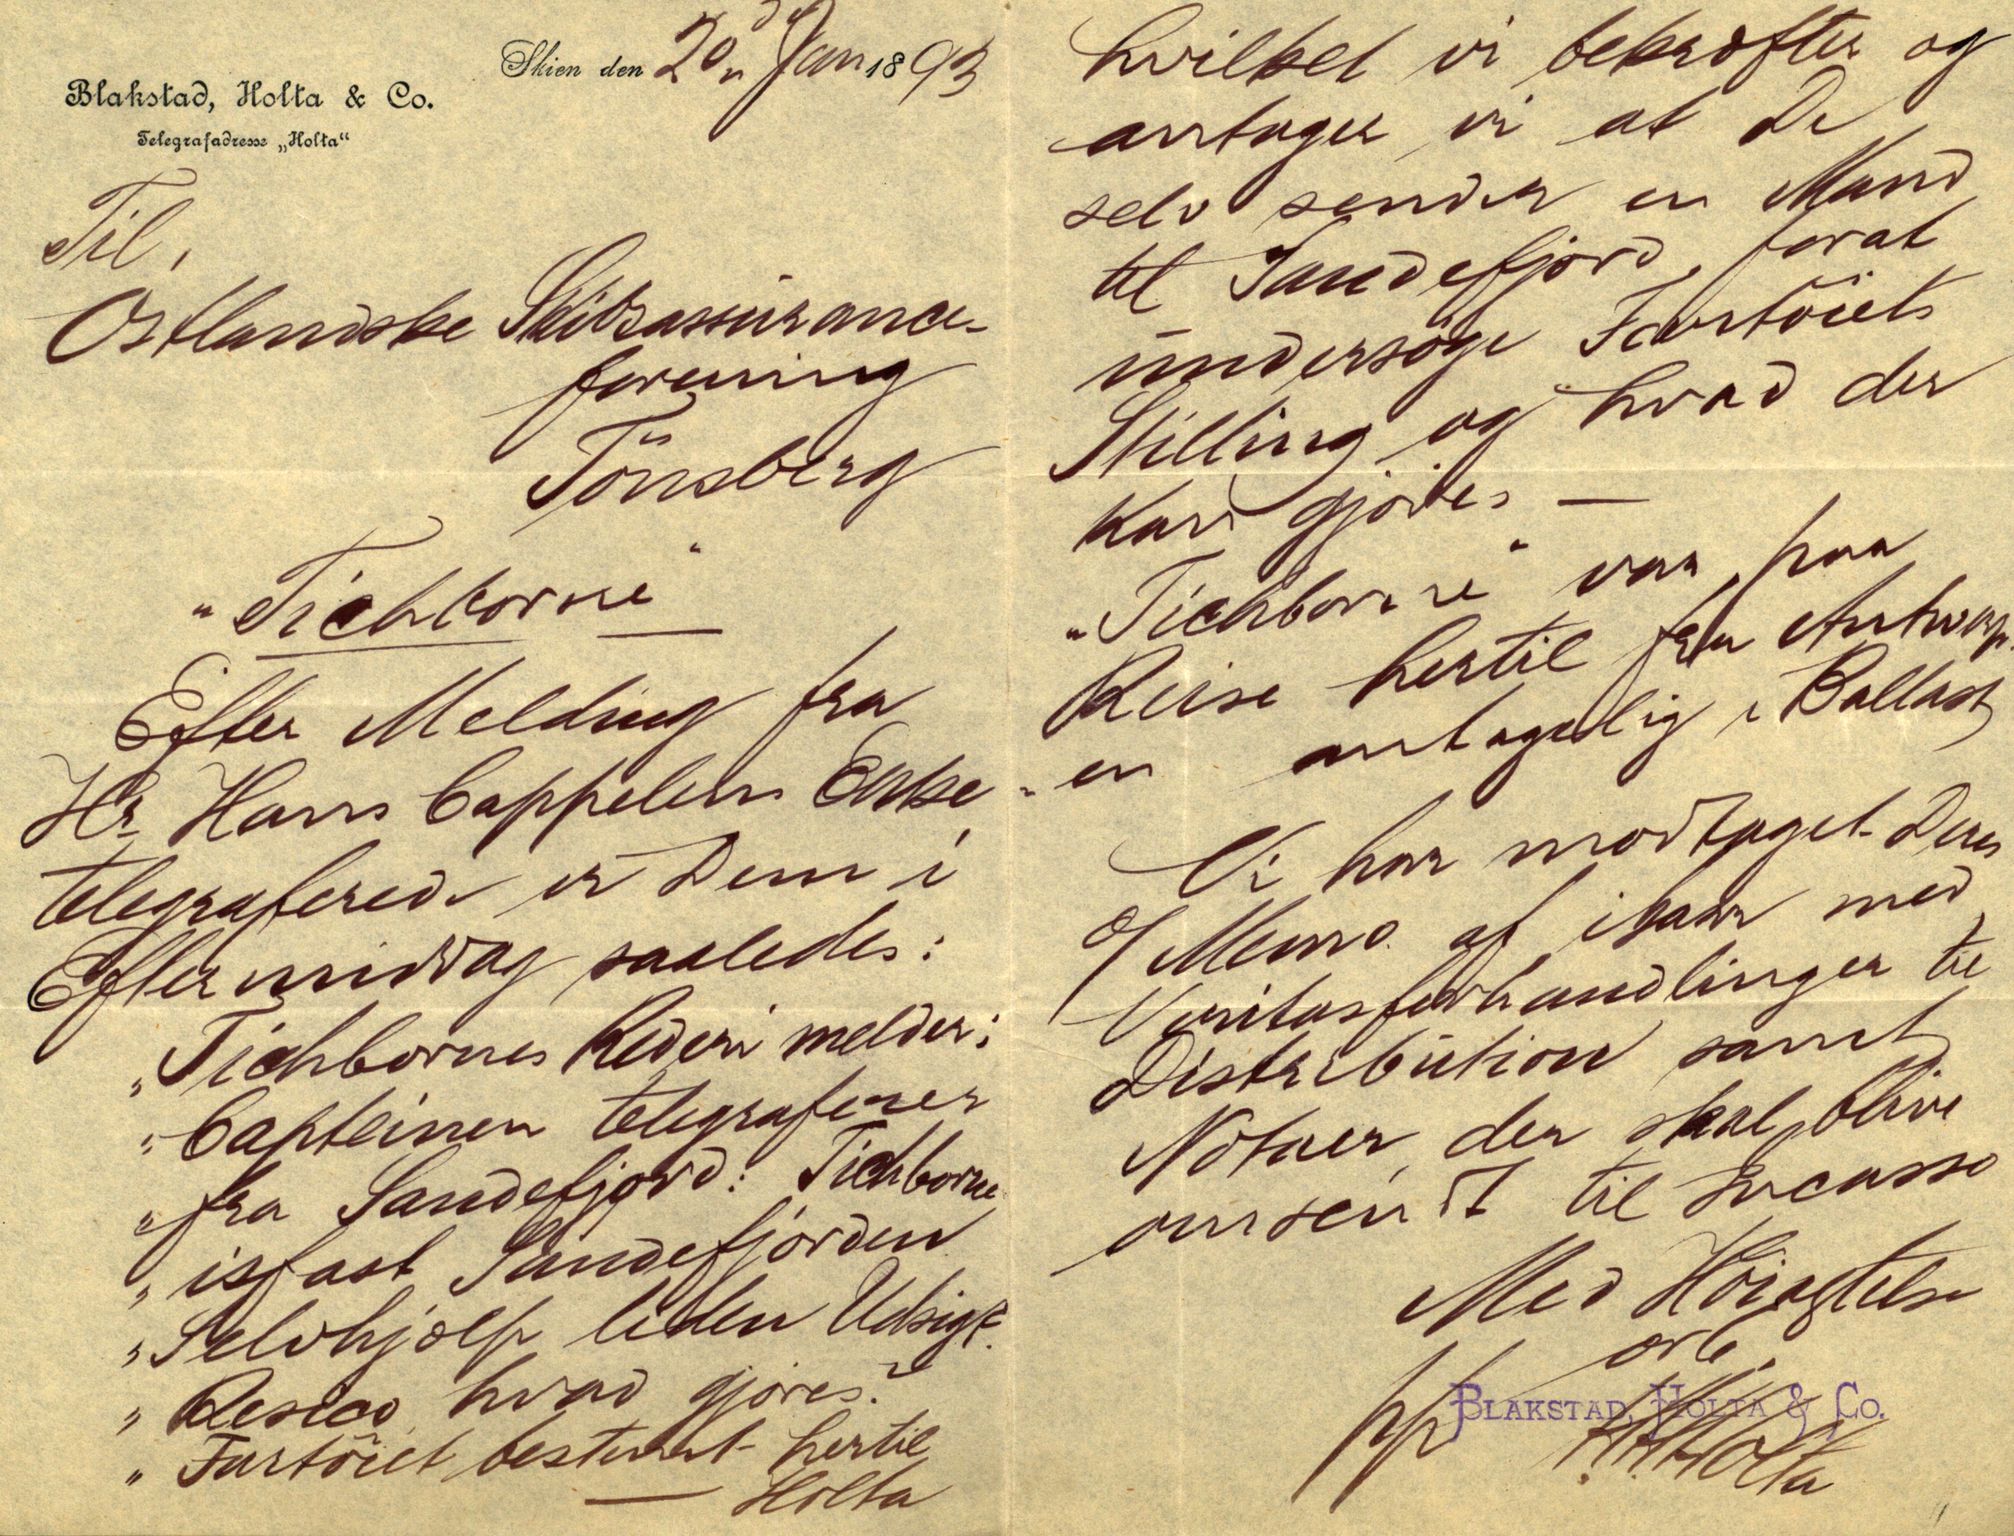 Blakstad, Holta & Co.
Telegrafadresse „Holta“
Skien den 20de Jan 1893
Til,
Østlandske Skibsassurance-
forening
Tönsberg
"Tichborne"
Efter Melding fra
Hr Hans Cappelens Enke
telegraferede vi Dem i
Eftermiddag saaledes:
"Tichbornes Rederi melder:
"Capteinen telegraferer
"fra Sandefjord: Tichborne
"isfast Sandefjorden
"Selvhjælp liden Udsigt.
"Resico, hvad gjöres?
"Fartöiet bestemt hertil
— Holta
hvilket vi bekræfter og
antager vi at De
selv sender en Mand
til Sandefjord, forat
undersöge Fartöiets
Stilling og hvad der
kan gjöres —
"Tichborne" var paa
Reise hertil fra Antwerp-
en antagelig i Ballast
Vi har modtaget Deres
Memo. af igaar med
Veritasforhandlinger til
Distribution samt
Notaer, der skal blive
omsendt til Incasso
Med Höiagtelse
pp Blakstad, Holta & Co.
Holta